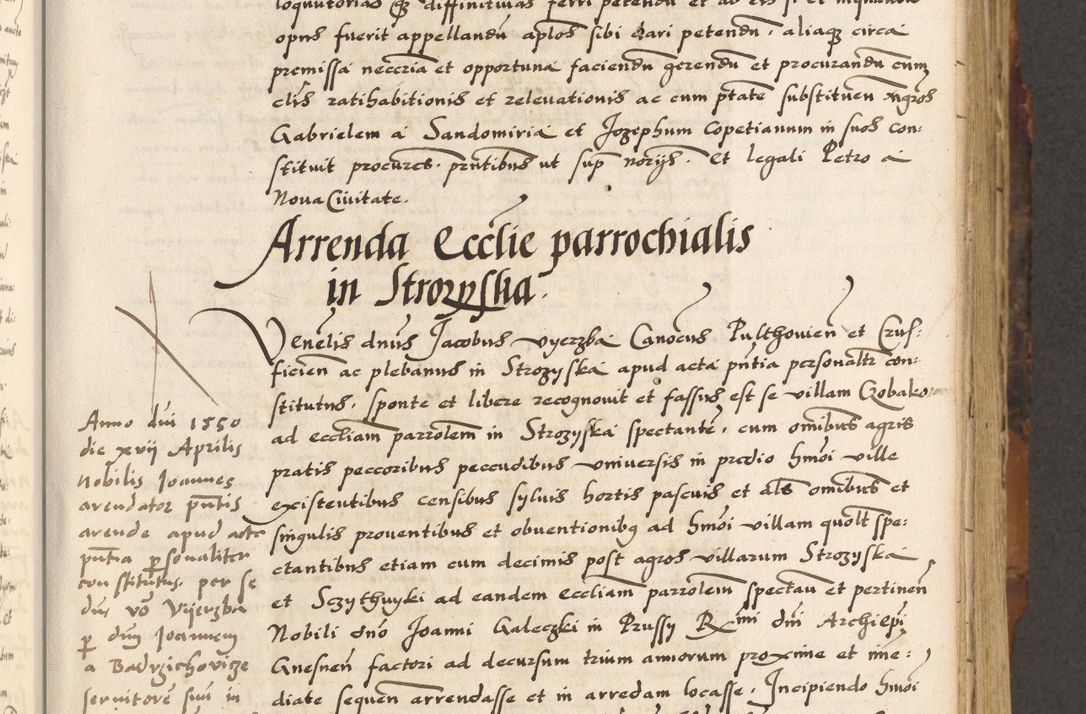 opus fuerit appellandu aplos sibi dari petendu, aliaqz circa
premissa necc̄ria et opportuna faciendu gerendu et procurandu cum
clis ratihabitionis et releuationis ac cum p̄tate substituen mgros
Gabrielem a Sandomiria et Jozephum Copetianum in suos con:
stituit procures. pn̄tibus ut sup norijs. Et legali Petro a
Noua Ciuitate.
Arrenda Eccl̄ie parrochialis
in Strozyska.
Venelis dnus Jacobus vyerzba Canocus Pulthouien̄ et Cruſ:
ficien̄ ac plebanus in Strozyska apud acta pn̄tia personalr con:
stitutus, sponte et libere recognouit et fassus est se villam Czobako
ad eccliam parrolem in Strozyska spectante, cum omibus agris
pratis peccoribus peccudibus vniuersis in predio hmōi ville
existentibus censibus syluis hortis pascuis et als omibus et
singulis prouentibus et obuentionibq ad hmōi villam quolt spe:
ctantibus etiam cum decimis post agros villarum Strozyska
et Sczythnyki ad eandem eccliam parrolem spectan̄ et pertinen̄
Nobili dno Joanni Galeczki in Prussy Rmi dni Archiepi
Gnesnen̄ factori ad decursum trium annorum proxime et ime:
diate sequen̄ arrendasse et in arredam locasse, Incipiendo hmōi
Anno dni 1550
die xvij Aprilis
nobilis Ioannes
arendator pn̄tis
arende apud acta
pn̄tia personaliter
constitutus, per se
dns vo Vyerzba
p dnm Joannem
a Badrzichovicze
seruitorē suū in